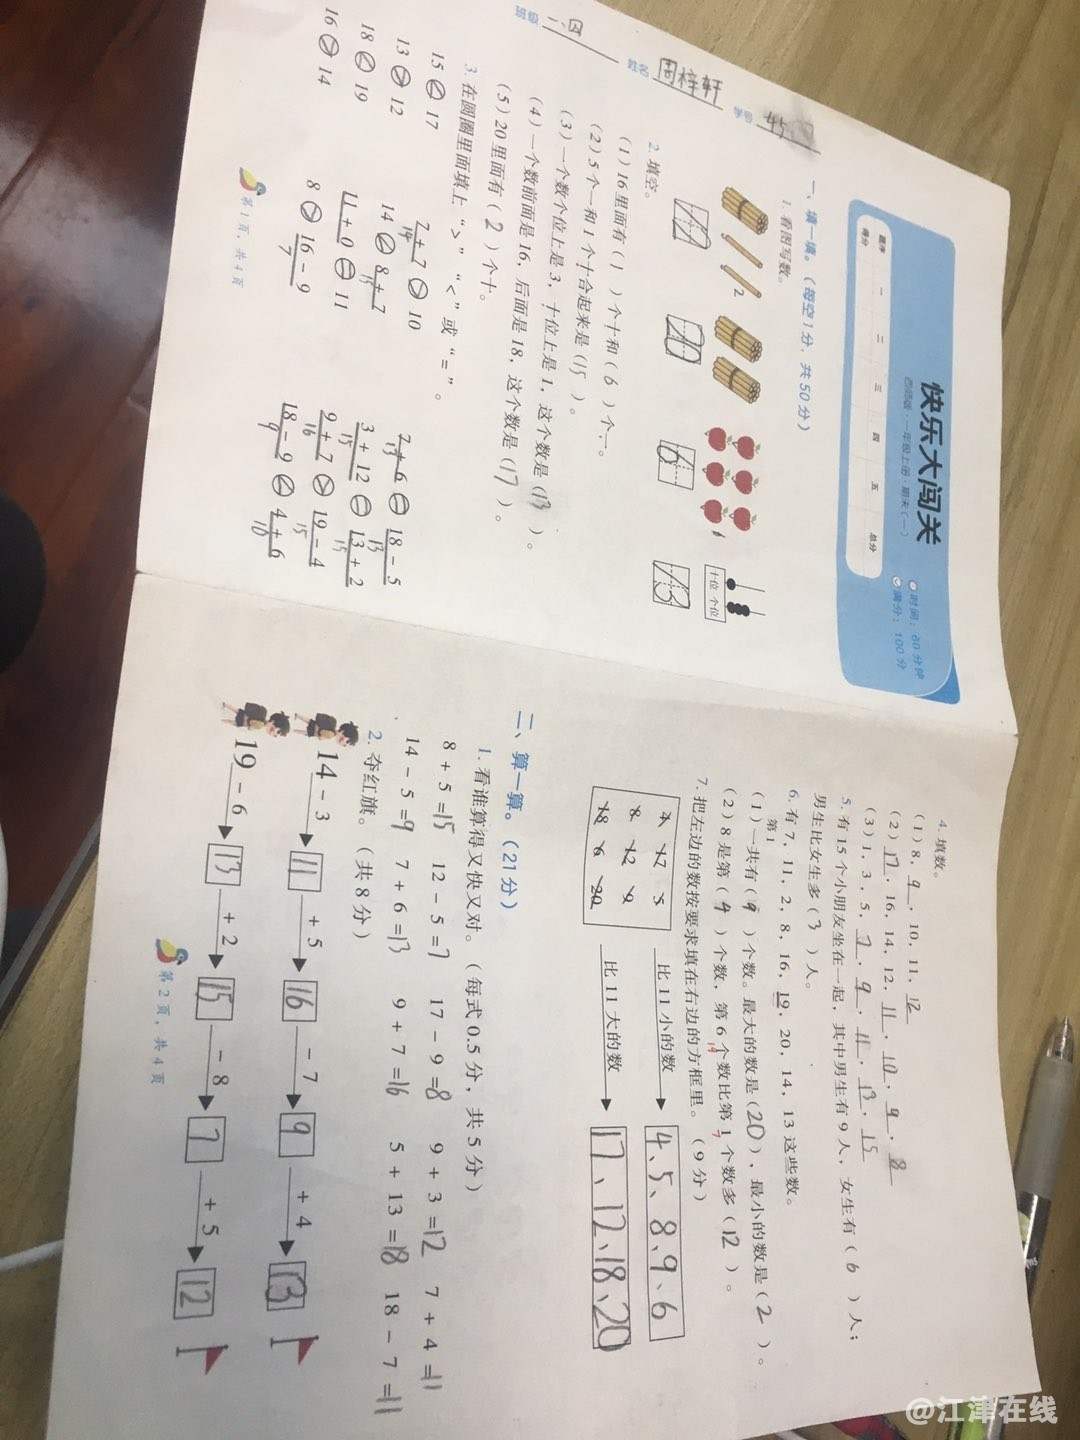 班级 一、四
姓名 周梓轩
学号 45
快乐大闯关
西师版·一年级上册·期末(一)
时间：60分钟
满分：100分
题序 一 二 三 四 五 总分
得分
一、填一填。(每空1分，共50分)
1. 看图写数。
2 1
十位 个位
12 20 6 13
2. 填空。
(1) 16里面有(1)个十和(6)个一。
(2) 5个一和1个十合起来是(15)。
(3) 一个数个位上是3，十位上是1，这个数是(13)。
(4) 一个数前面是16，后面是18，这个数是(17)。
(5) 20里面有(2)个十。
3. 在圆圈里面填上“>”“<”或“=”。
15 < 17 7+7 > 10 7+6 = 18-5
14 13 13
13 > 12 14 < 8+7 3+12 = 13+2
15 15 15
18 < 19 11+0 = 11 9+7 > 19-4
16 15
16 > 14 8 > 16-9 18-9 < 4+6
7 9 10
第1页，共4页
4. 填数。
(1) 8，9，10，11，12
(2) 17，16，14，12，11，10，9，8
(3) 1，3，5，7，9，11，13，15
5. 有15个小朋友坐在一起，其中男生有9人，女生有(6)人；
男生比女生多(3)人。
6. 有7，11，2，8，16，19，20，14，13这些数。
第1
(1) 一共有(9)个数。最大的数是(20)，最小的数是(2)。
(2) 8是第(4)个数，第6个数比第1个数多(12)。
19 7
7. 把左边的数按要求填在右边的方框里。(9分)
4 17 5
8 12 9
18 6 20
比11小的数 4、5、8、9、6
比11大的数 17、12、18、20
二、算一算。(21分)
1. 看谁算得又快又对。(每式0.5分，共5分)
8+5=15 12-5=7 17-9=8 9+3=12 7+4=11
14-5=9 7+6=13 9+7=16 5+13=18 18-7=11
2. 夺红旗。(共8分)
14 -3 11 +5 16 -7 9 +4 13
19 -6 13 +2 15 -8 7 +5 12
第2页，共4页
@江津在线